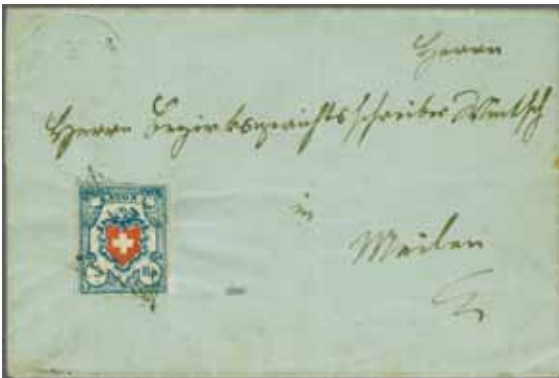 Herrn
Herrn Bezirksgerichtsschreiber
in
Meilen
RAYON